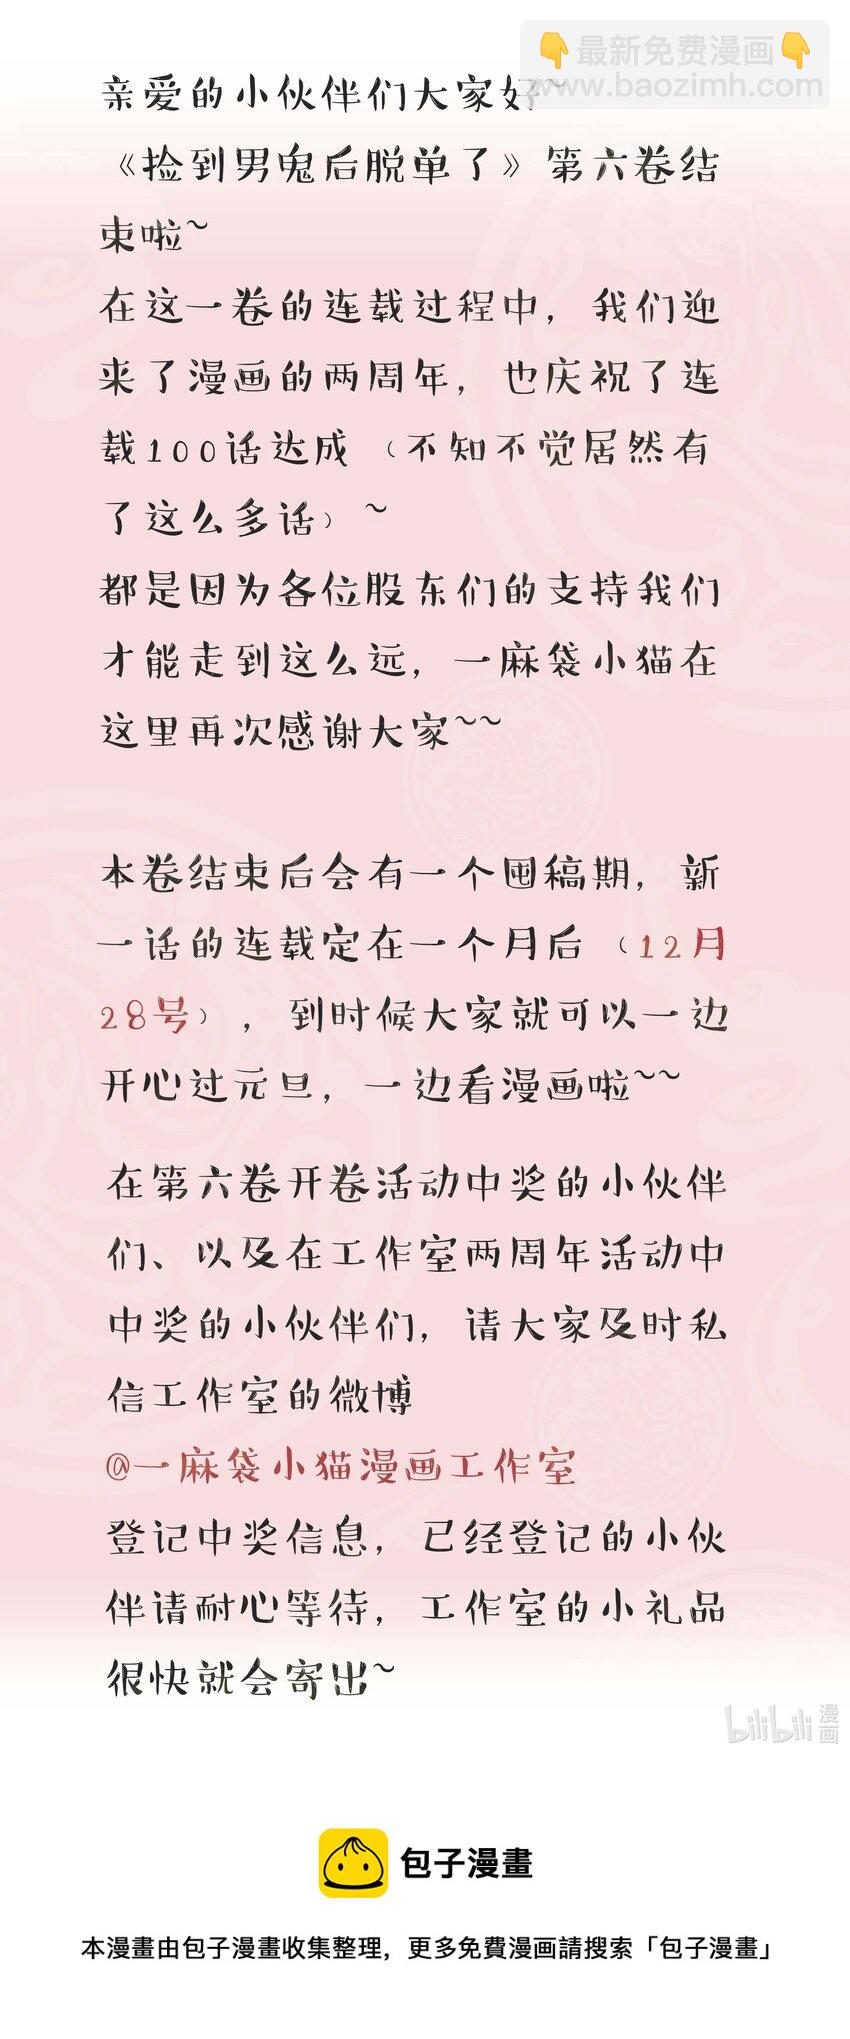 👇最新免费漫画👇
www.baozimh.com
亲爱的小伙伴们大家好~
《捡到男鬼后脱单了》第六卷结
束啦~
在这一卷的连载过程中，我们迎
来了漫画的两周年，也庆祝了连
载100话达成（不知不觉居然有
了这么多话）~
都是因为各位股东们的支持我们
才能走到这么远，一麻袋小猫在
这里再次感谢大家~~
本卷结束后会有一个囤稿期，新
一话的连载定在一个月后（12月
28号），到时候大家就可以一边
开心过元旦，一边看漫画啦~~
在第六卷开卷活动中奖的小伙伴
们、以及在工作室两周年活动中
中奖的小伙伴们，请大家及时私
信工作室的微博
@一麻袋小猫漫画工作室
登记中奖信息，已经登记的小伙
伴请耐心等待，工作室的小礼品
很快就会寄出~
bilibili漫画
包子漫畫
本漫畫由包子漫畫收集整理，更多免費漫画請搜索「包子漫畫」